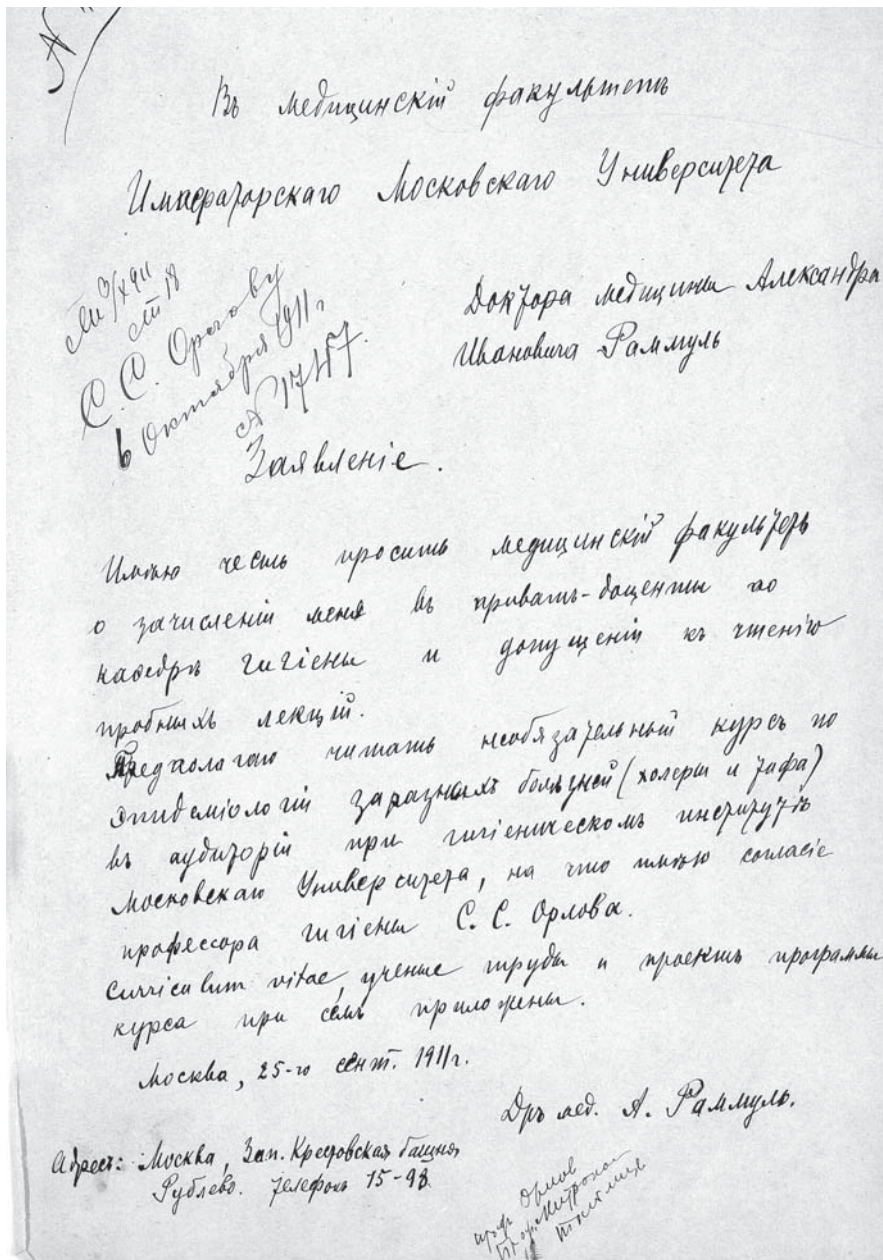 Въ медицинскій факультетъ
Императорскаго Московскаго Университета
Доктора медицины Александра
Ивановича Раммуль
С. С. Орлову
6 Октября 1911 г
Заявленіе.
Имѣю честь просить медицинскій факультетъ
о зачисленіи меня въ приватъ-доценты по
кафедрѣ гигіены и допущеніи къ чтенію
пробныхъ лекцій.
Предполагаю читать необязательный курсъ по
эпидеміологіи заразныхъ болѣзней (холеры и тифа)
въ аудиторіи при гигіеническомъ институтѣ
Московскаго Университета, на что имѣю согласіе
профессора гигіены С. С. Орлова.
Curriculum vitae, ученые труды и проектъ программы
курса при семъ приложены.
Москва, 25-го сент. 1911 г.
Дръ мед. А. Раммуль.
Адресъ: Москва, Зап. Крестовская башня
Рублево. Телефонъ 15-98.
проф. Орлов